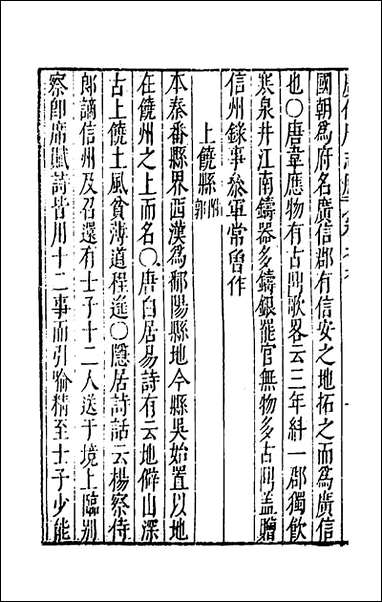 國朝為府名廣信郡有信安之地拓之而為廣信
也〇唐韋應物有古㒰歌畧云三年紏一郡獨飲
寒泉井江南鑄器多鑄銀罷官無物多古㒰盖贈
信州錄事叅軍常曾作
上饒縣附郭
本秦番縣界西漢為鄱陽縣地今縣吳始置以地
在饒州之上而名〇唐白居易詩有云地僻山深
古上饒土風貧薄道程遙〇隱居詩話云楊察侍
郎謫信州及召還有士子十二人送于境上臨别
察卽席賦詩皆用十二事而引喻精至士子少能